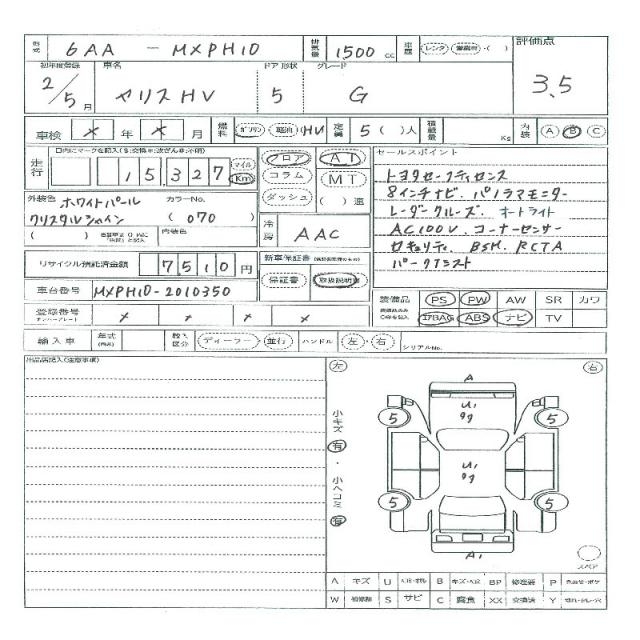 型式 6AA - MXPH10 排気量 1500 cc 車歴 レンタ ・( ) 評価点
初年度登録 車名 ドア形状 グレード
2/5月 ヤリスHV 5 G 3.5
車検 × 年 × 月 燃料 ガソリン 軽油 HV 定員 5( )人 積載量 Kg 内装 A B C
走行 15,327 マイル Km フロア AT セールスポイント
コラム MT トヨタセーフティセンス
ダッシュ ( )速 8インチナビ. パノラマモニター
外装色 ホワイトパール カラーNo. レーダークルーズ. オートライト
クリスタルシャイン ( 070 ) AC100V. コーナーセンサー
( ) 内装色 冷房 AAC セキュリティ. BSM. RCTA
パークアシスト
リサイクル預託済金額 7510円 新車保証書
保証書 取扱説明書
車台番号 MXPH10-2010350 装備品 PS PW AW SR カワ
登録番号 × × × × エアBAG ABS ナビ TV
輸入車 年式 輸入区分 ディーラー・並行 ハンドル 左・右 シリアルNo.
左 右
A
U1
99
5 5
小キズ 有・小ヘコミ 有
U1
99
5 5
A1
スペア
A キズ U B BP 修理跡 P
W S サビ C 腐食 XX 交換済 Y